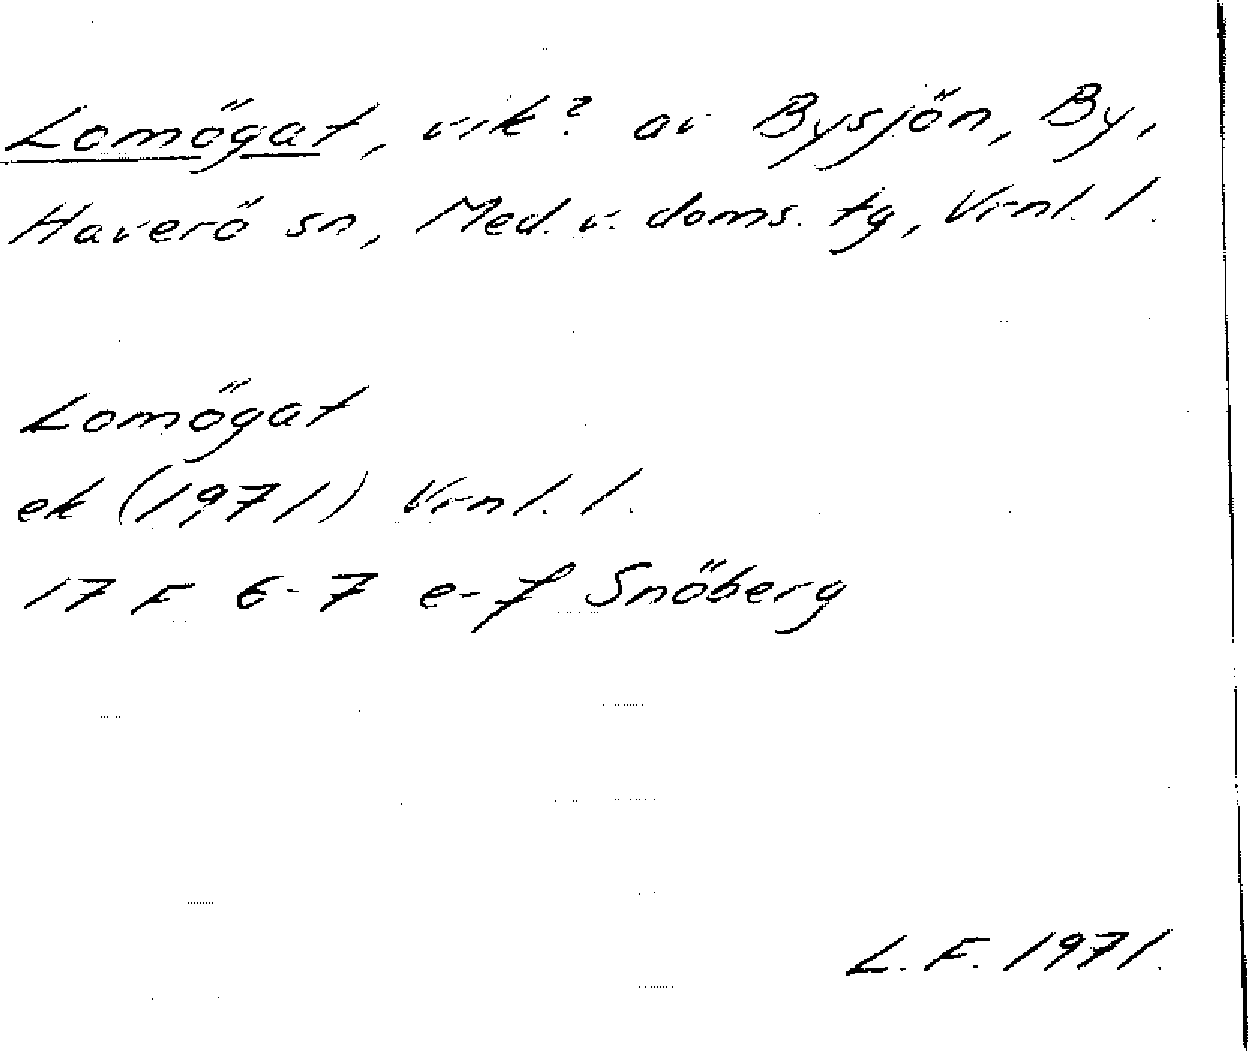 Lomögat, vik? av Bysjön, By,
Haverö sn, Med. v. doms. tg, Vrnl. l.
Lomögat
ek (1971) Vrnl. l.
17 F 6-7 e-f Snöberg
L. F. 1971.